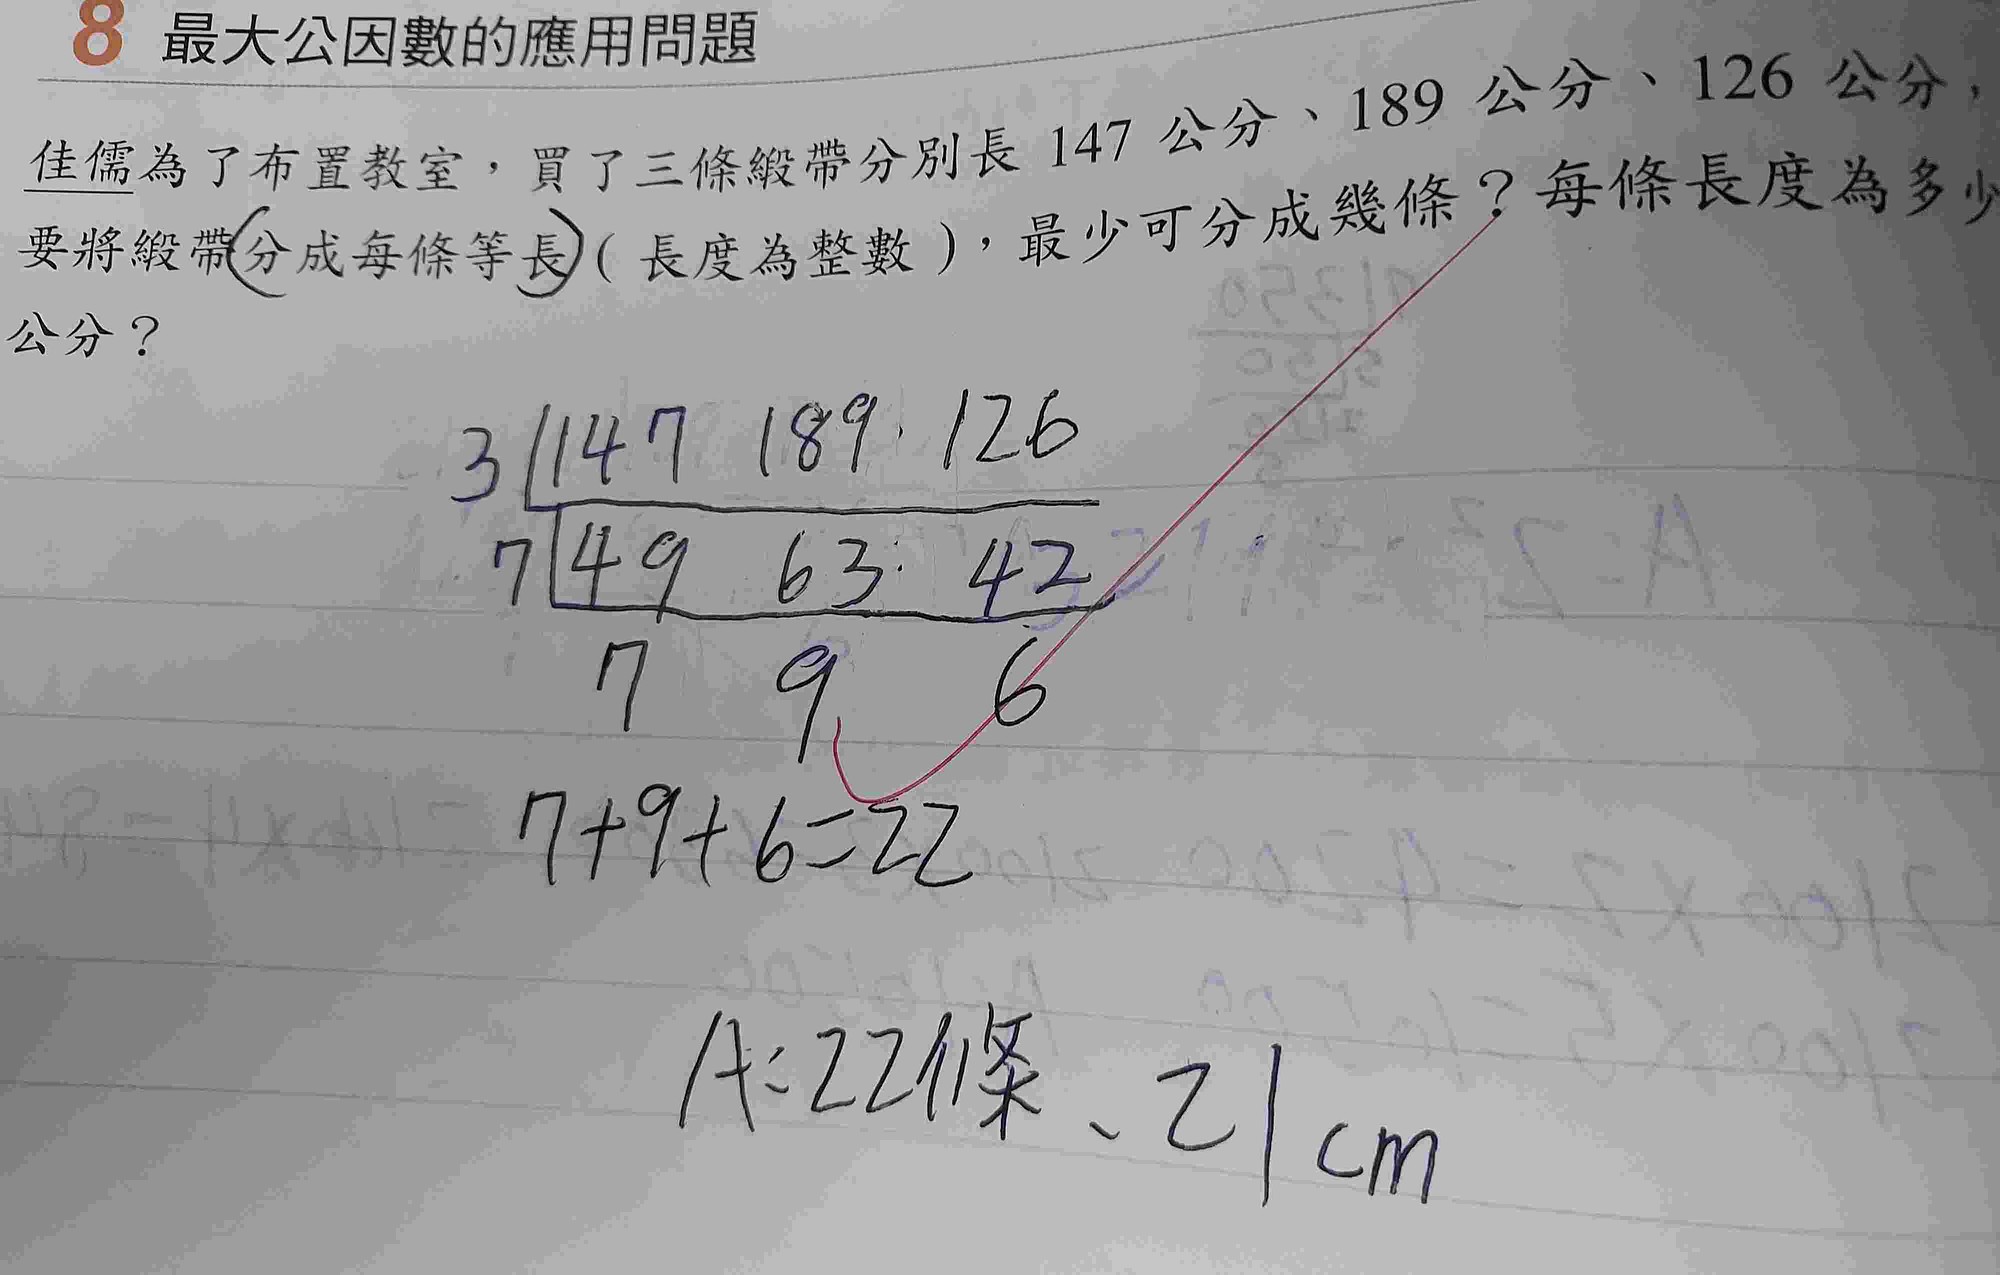 8 最大公因數的應用問題
佳儒為了布置教室，買了三條緞帶分別長 147 公分、189 公分、126 公分，
要將緞帶(分成每條等長)(長度為整數)，最少可分成幾條？每條長度為多少
公分？
3 147 189 126
7 49 63 42
7 9 6
7+9+6=22
A:22條、21cm